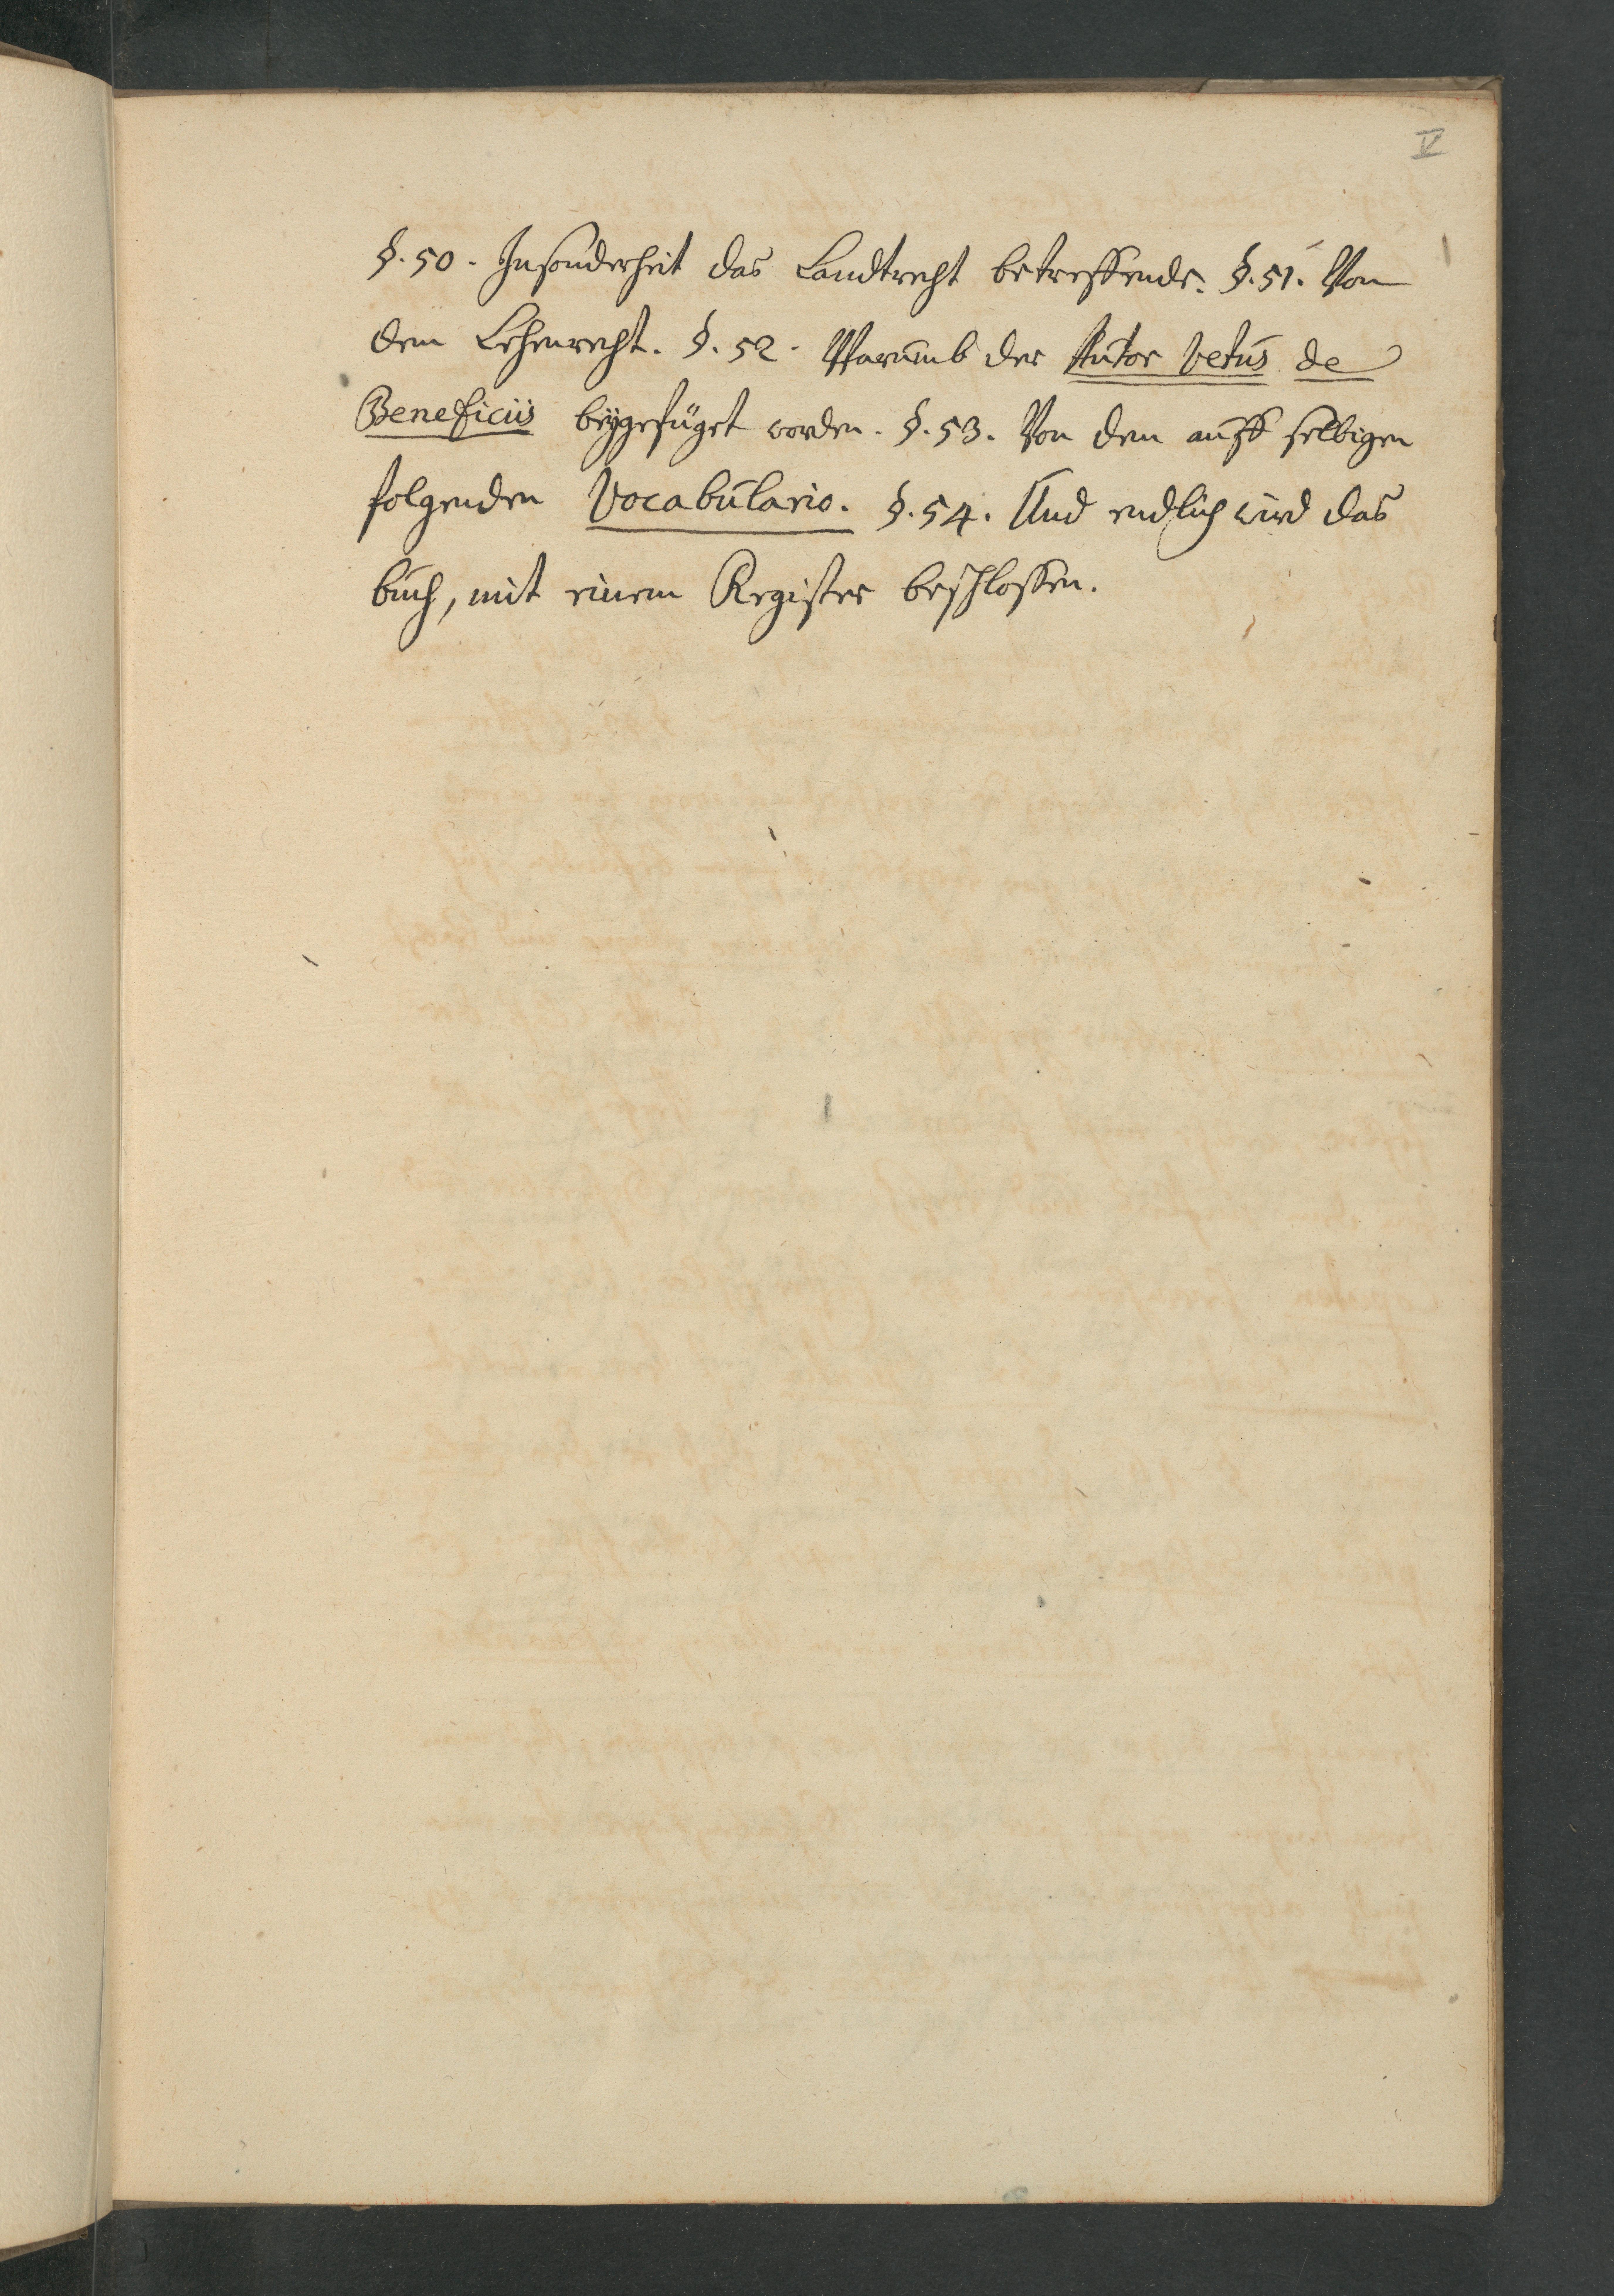 V
§. 50. Insonderheit das Landtrecht betreffende. §. 51. Von
dem Lehenrecht. §. 52. Warumb der Autor Vetus de
Beneficiis beÿgefüget worden. §. 53. Von dem auff selbigen
folgenden Vocabulario. §. 54. Und endlich wird das
buch, mit einem Register beschlossen.